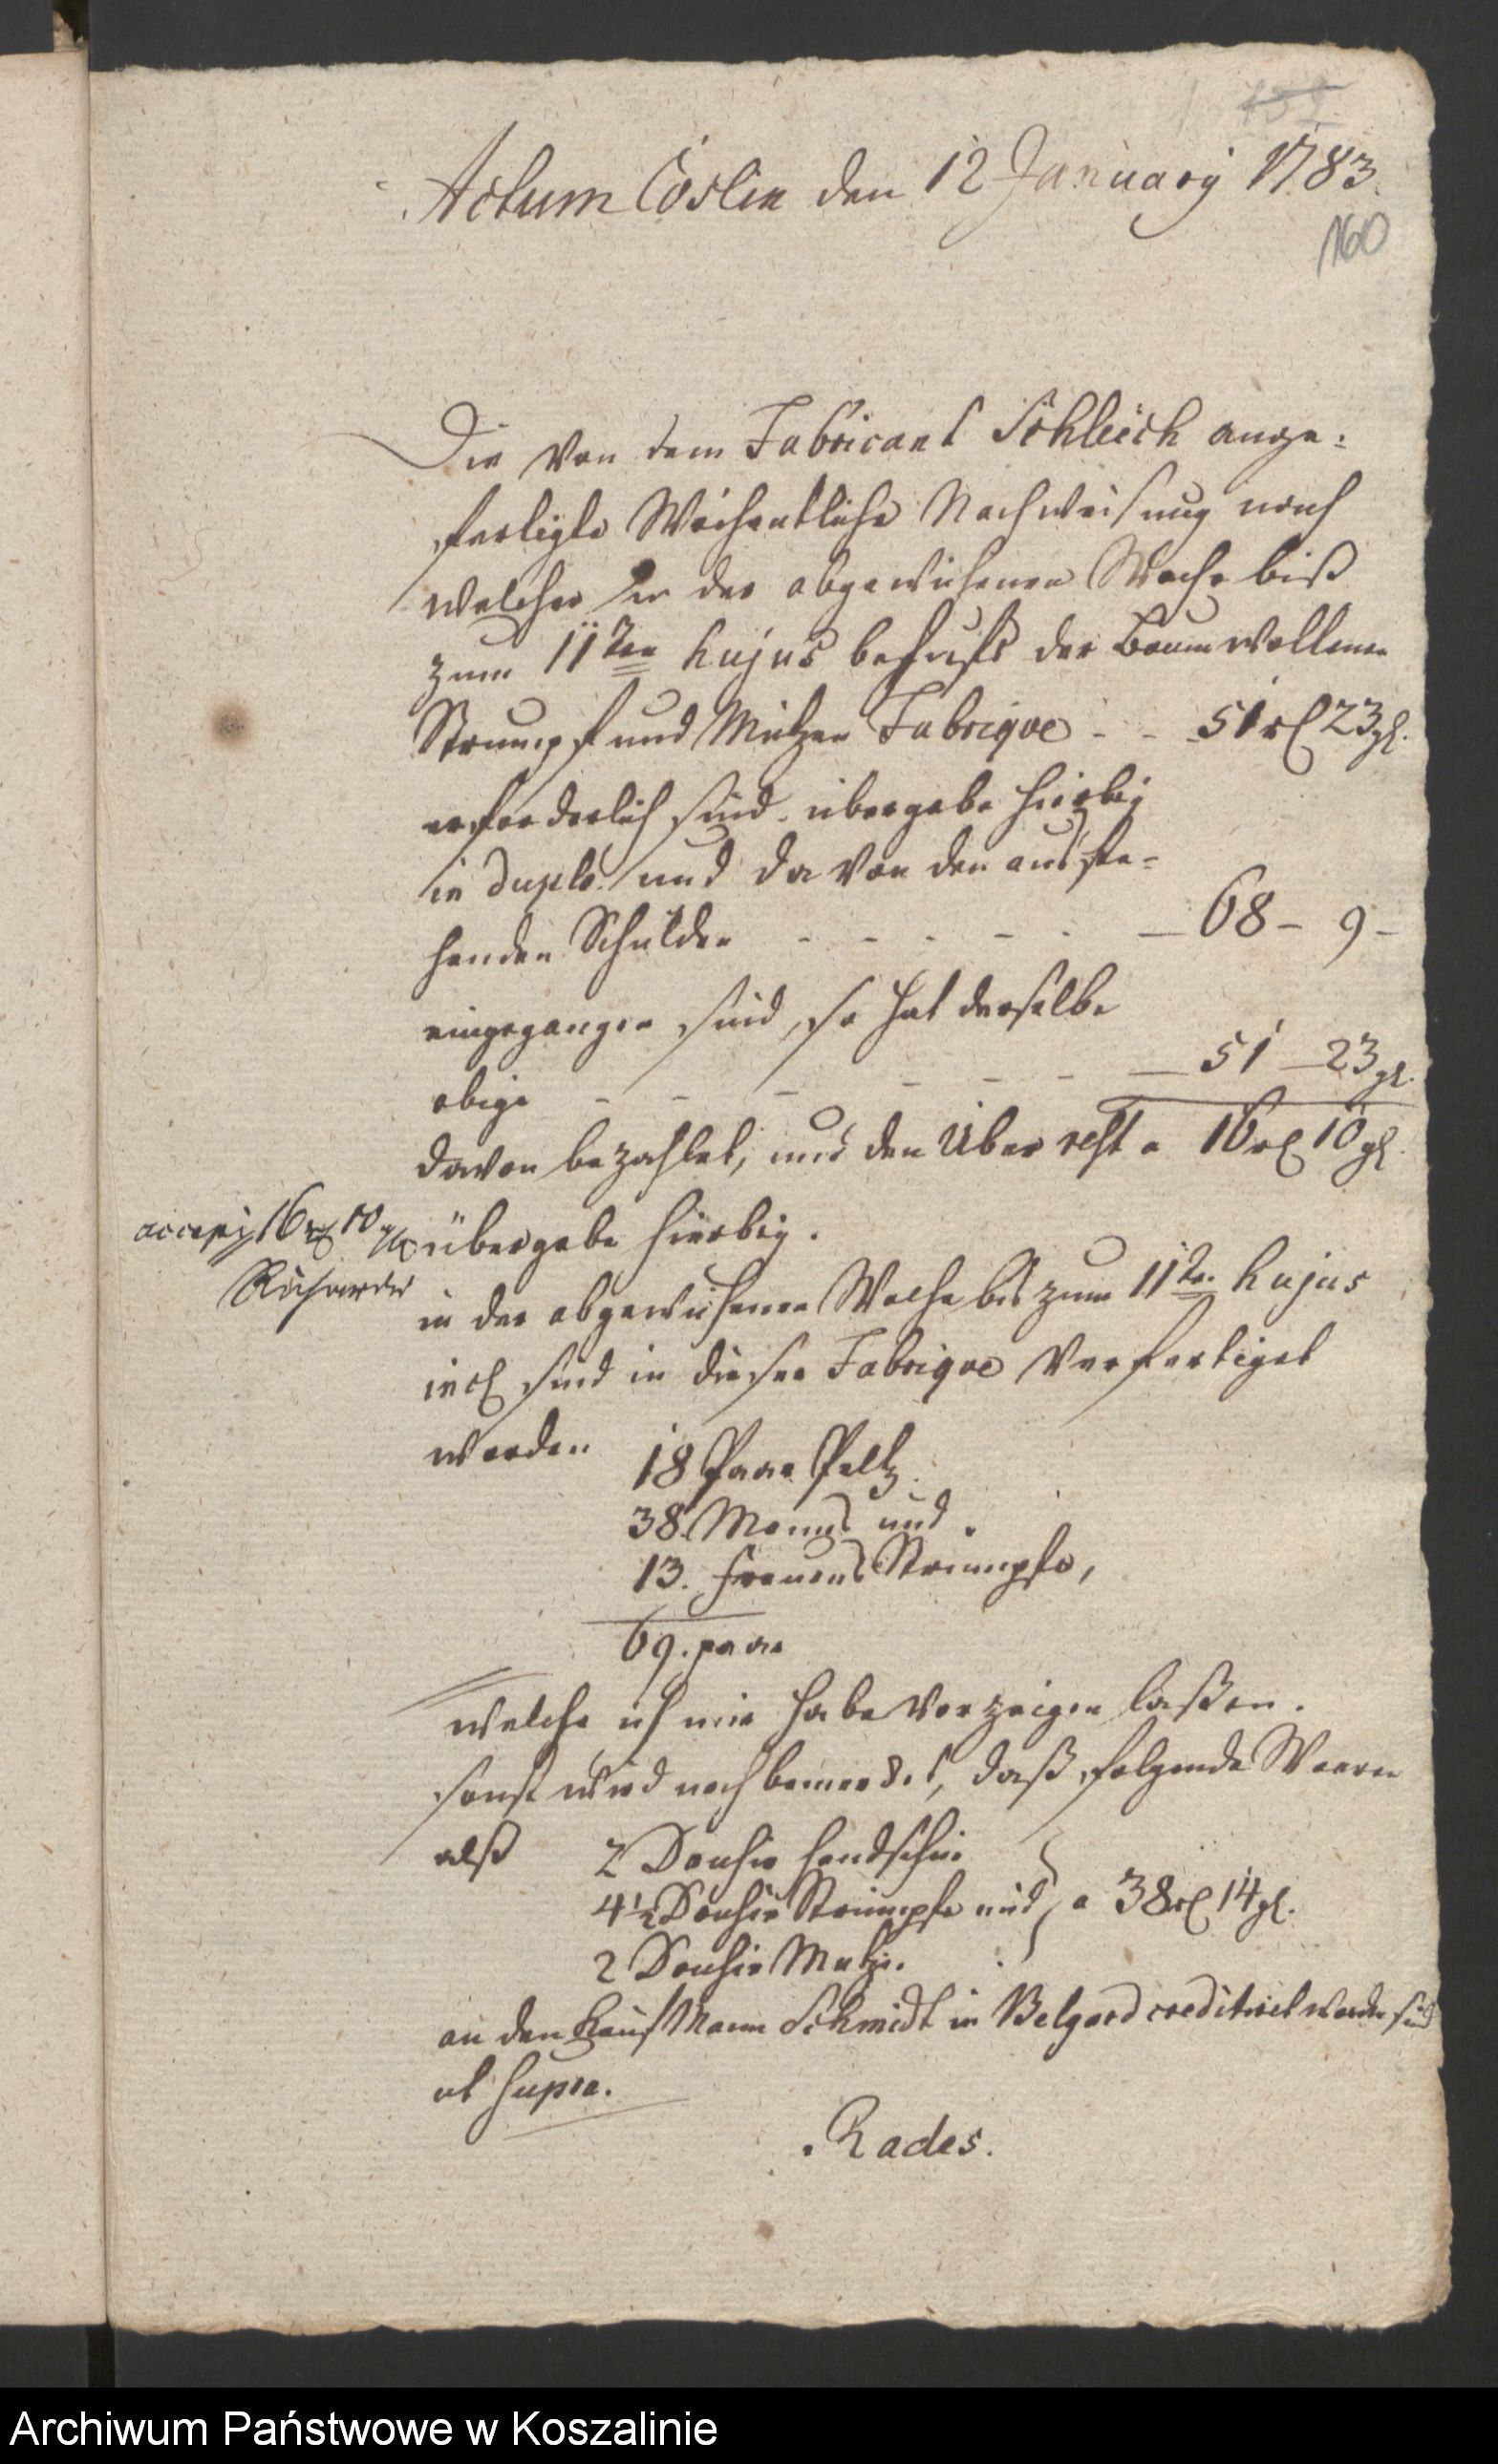 159
Actum Cöslin den 12 January 1783.
160
Die von dem Fabricant Schleich ange-
fertigte Wöchentliche Nachweisung nach
welcher in der abgewichenen Woche biß
zum 11ten hujus behufs der Baumwollenen
Strumpf und Mützen Fabrique - - 51 rl 23 gl.
erforderlich sind übergebe hierbey
in duplo und da von den ausste-
henden Schulden - - - - - 68 - 9 -
eingegangen sind, so hat derselbe
obige - - - - - - 51 - 23 gl.
davon bezahlet, und den Über rest a 16 rl 10 gl.
accepi 16 rl 10 gl
übergebe hierbey.
in der abgewichenen Woche bis zum 11ten hujus
incl sind in dieser Fabrique verfertiget
worden
18 Paar Peltz
38. Manns und
13. Frauens Strümpfe,
69. paar
welche ich mir habe vorzeigen laßen.
sonst wird noch bemerket, daß folgende Waaren
alß
2 Douzin Handschue
4½ Douzin Strümpfe und a 38 rl 14 gl.
2 Douzin Mützen
an den Kauf Mann Schmidt in Belgard creditiret worden sind
ut supra.
Rades.
Archiwum Państwowe w Koszalinie